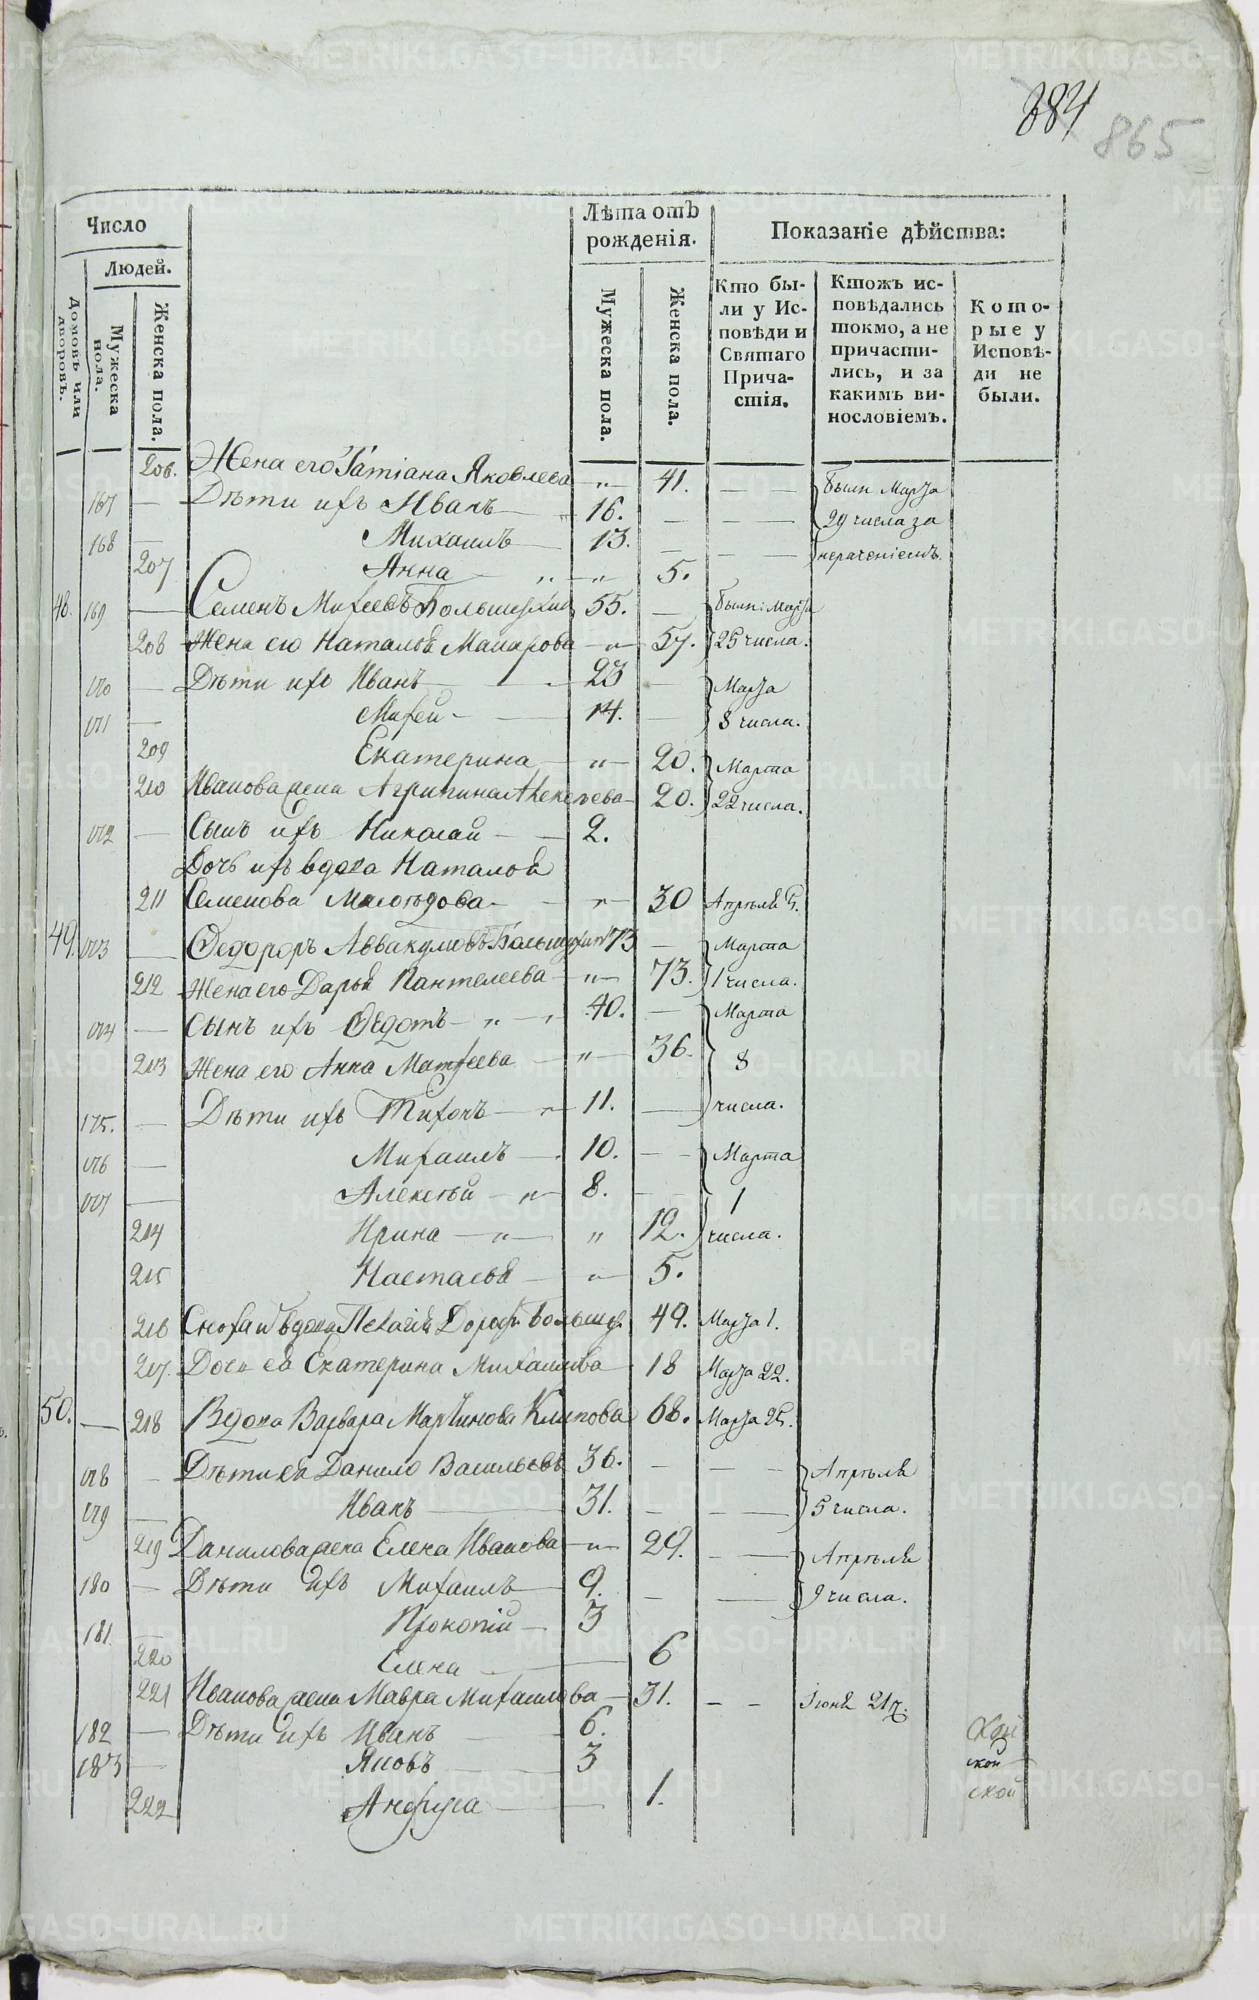 384
865
Число
Лѣта отъ рожденія.
Показаніе дѣйства:
Людей.
Домовъ или дворовъ.
Мужеска пола.
Женска пола.
Мужеска пола.
Женска пола.
Кто были у Исповѣди и Святаго Причастія.
Ктожъ исповѣдались токмо, а не причастились, и за какимъ винословіемъ.
Которые у Исповѣди не были.
206. Жена его Татіана Яковлева — „ — 41. — — были Марта
167 — Дѣти ихъ Иванъ — 16. — — — 29 числа за
168 — Михаилъ — 13. — — — нераченіемъ.
207 Анна „ — „ — 5.
48. 169 — Семенъ Михеевъ Большухинъ 55. — были: Марта
208 Жена его Наталья Макарова — „ — 57. 25 числа.
170 — Дѣти ихъ Иванъ — 23 — Марта
171 — Михей — 14. — 8 числа.
209 Екатерина — „ — 20. Марта
210 Иванова жена Агрипина Алексѣева — 20. 22 числа.
172 — Сынъ ихъ Николай — 2.
Дочь ихъ вдова Наталья
211 Семенова — „ — 30 Апрѣля 5.
49. 173 — Ѳедоръ Аввакумовъ Большухинъ 73 — Марта
212 Жена его Дарья Пантелеева — „ — 73. 1 числа.
174 — Сынъ ихъ Ѳедотъ — „ — 40. — Марта
213 Жена его Анна Матѳеева — „ — 36. 8
175. — Дѣти ихъ Тихонъ — „ — 11. — числа.
176 — Михаилъ — 10. — — Марта
177 — Алексѣй — „ — 8. — 1
214 Ирина — „ — „ 12. числа.
215 Настасья — „ — 5.
216 Сноха и вдова Дороф. Большух. 49. Марта 1.
217. Дочь ея Екатерина Михайлова 18 Марта 22.
50. — 218 Вдова Варвара Мартинова Климова 68. Марта 25.
178 — Дѣти ея Данило Васильевъ 36. — — — Апрѣля
179 — Иванъ — 31. — — — 5 числа.
219 Данилова жена Елена Иванова — „ — 29. — — Апрѣля
180 — Дѣти ихъ Михаилъ — 9. — — 9 числа.
181. — Прокопій — 3
220 Елена — 6
221 Иванова жена Мавра Михайлова — 31. — — Іюня 21
182 — Дѣти ихъ Иванъ — 6.
183 — Яковъ — 3 ской
222 — 1. ской
METRIKI.GASO-URAL.RU